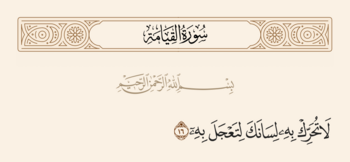 سُورَةُ الْقِيَامَةِ
بِسْمِ اللَّهِ الرَّحْمَٰنِ الرَّحِيمِ
لَا تُحَرِّكْ بِهِۦ لِسَانَكَ لِتَعْجَلَ بِهِۦٓ ١٦